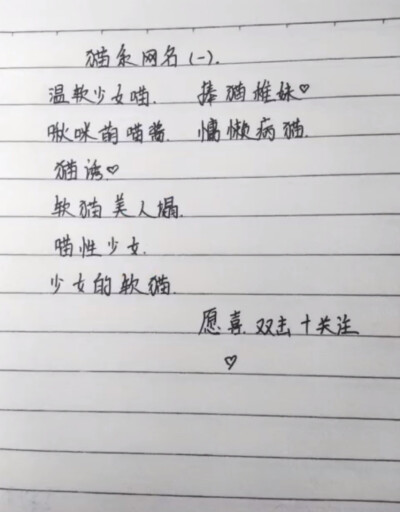 猫系网名(一).
温软少女喵. 捧猫稚妹♡
啾咪萌喵酱. 慵懒病猫.
猫诱♡
软猫美人榻.
喵性少女.
少女的软猫.
愿喜 双击十关注
♡